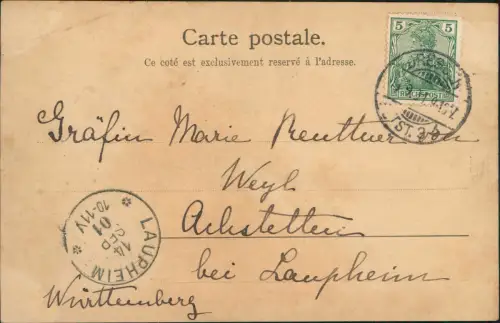 Carte postale.
Ce coté est exclusivement reservé à l'adresse.
5
5
REICHSPOST
DRESDEN
ST. 3/b
Gräfin Marie Reuttner von
Weyl
Achstetten
bei Laupheim
Württemberg
LAUPHEIM
14
SEP
01
10-11V